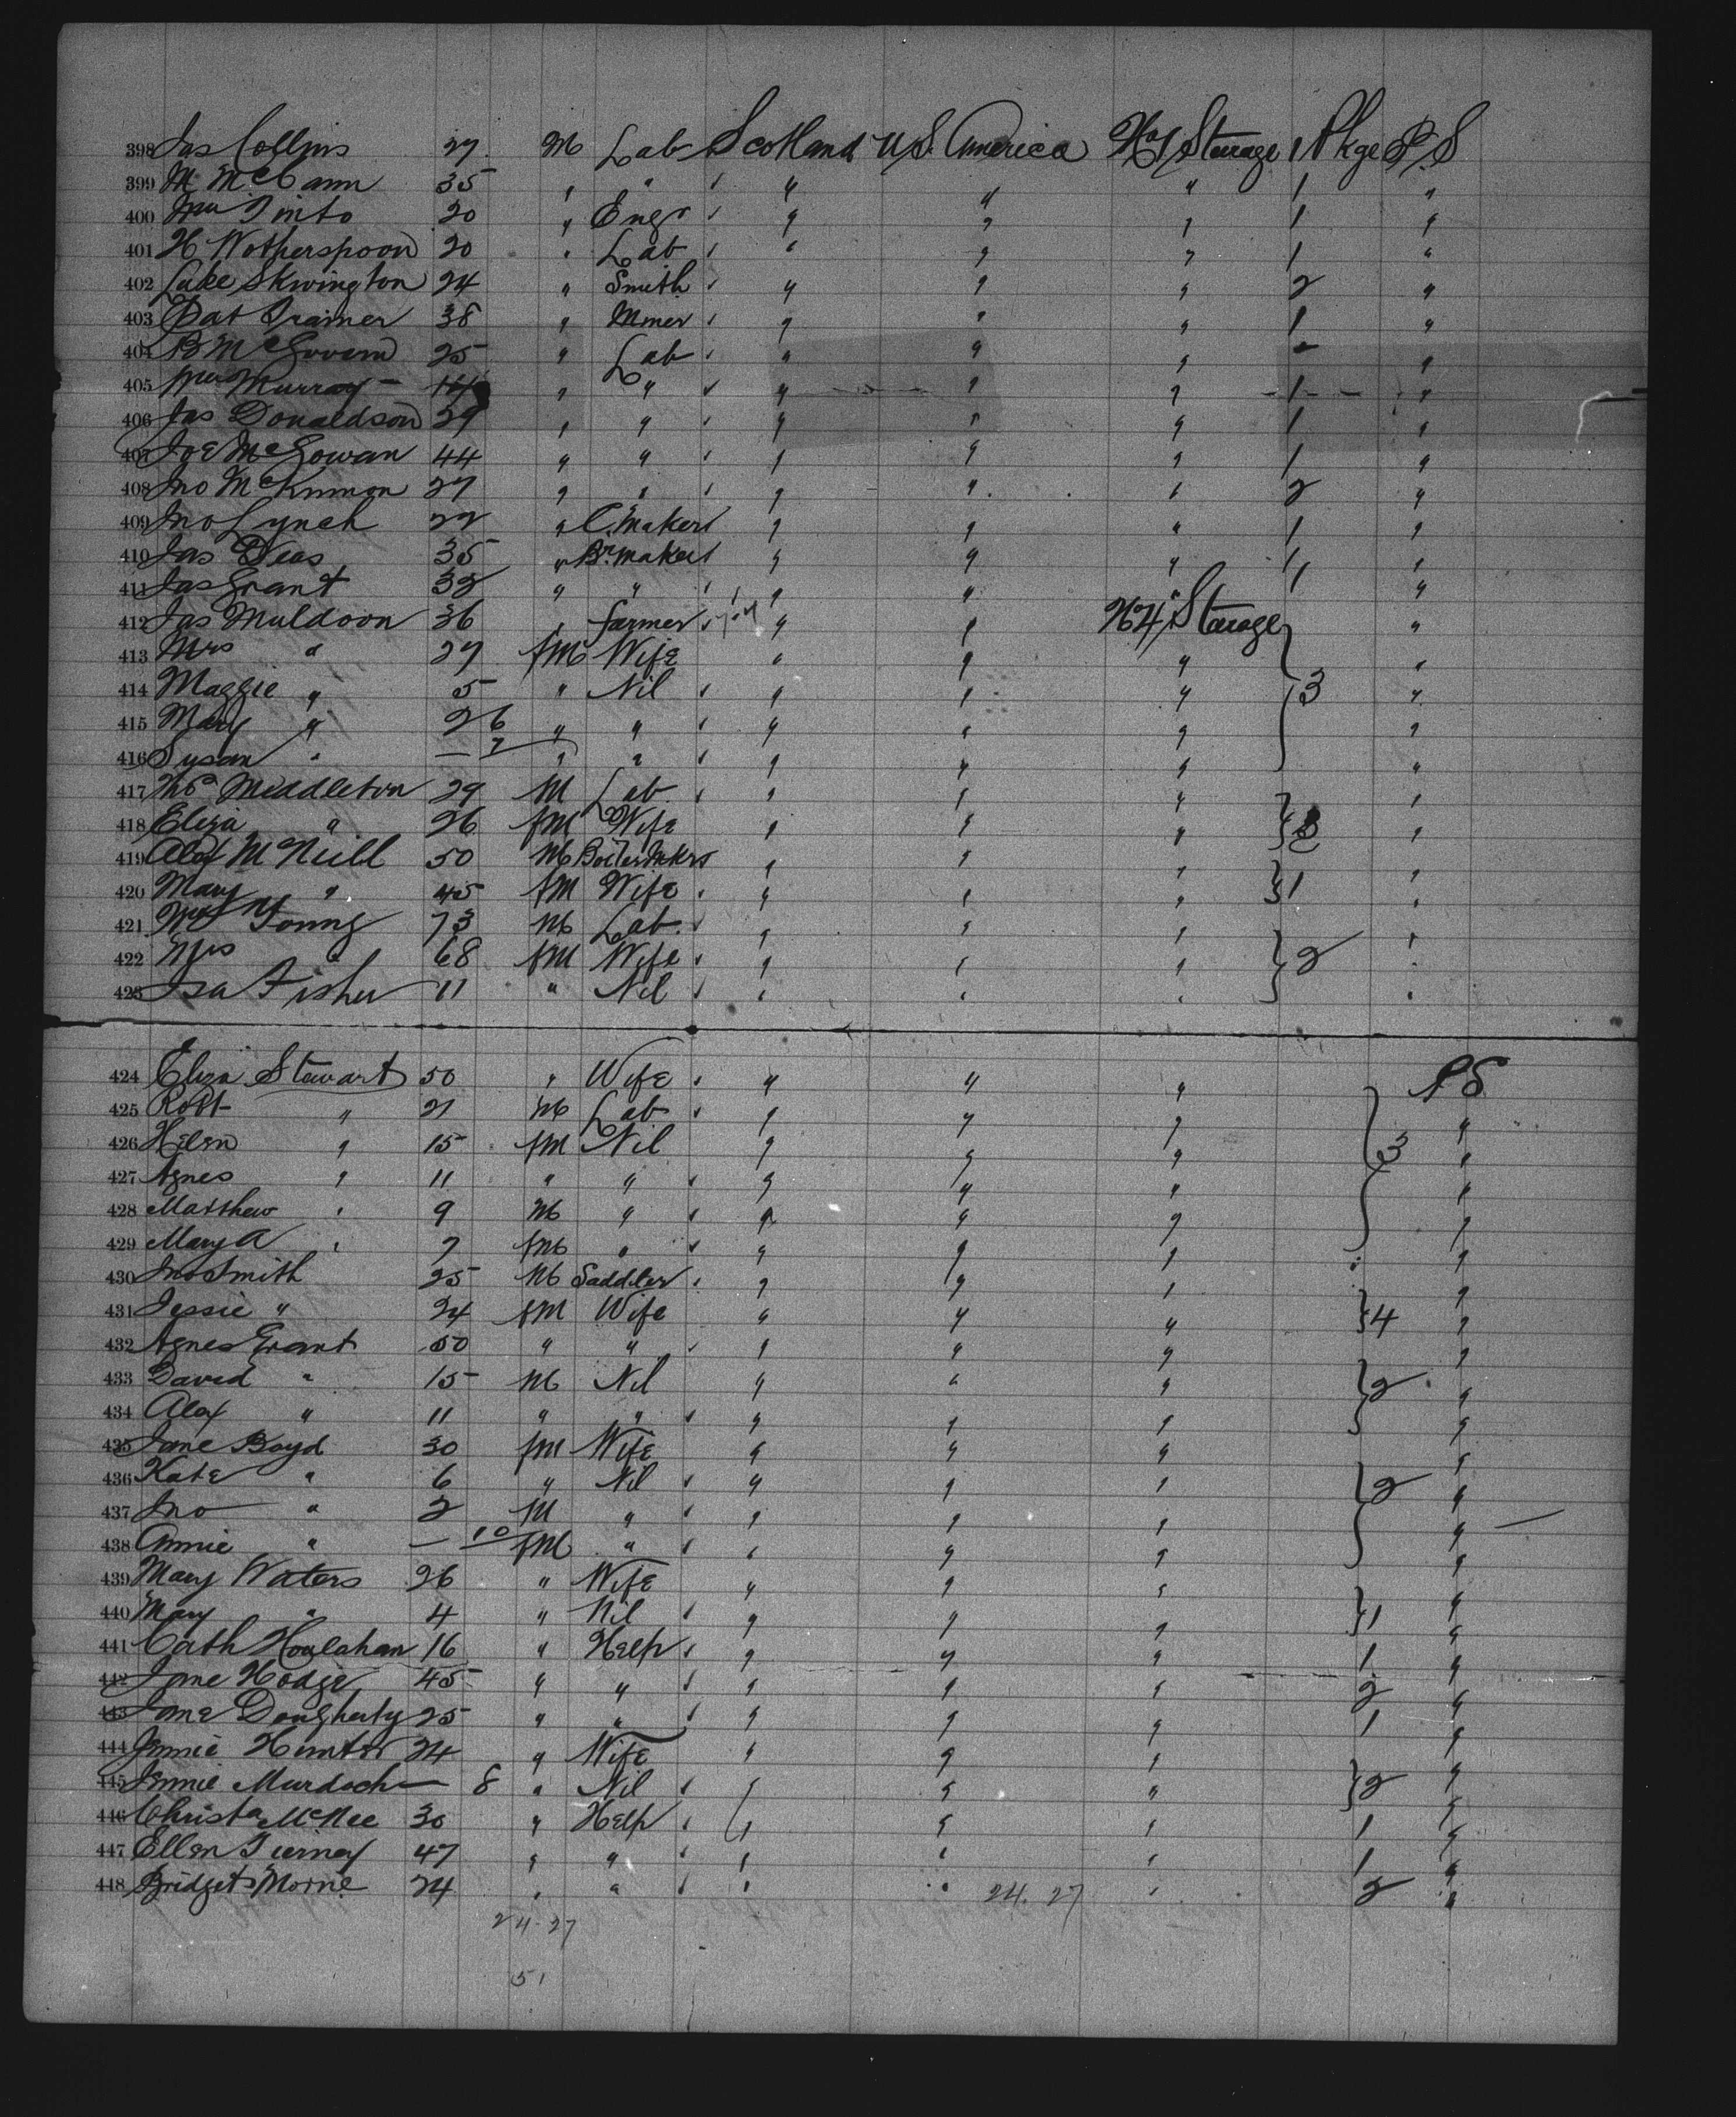 398 Jas Collins 27 M Lab Scotland U.S. America No 1 Sterage 1 Pkge P.S
399 M McCann 35 " " " " " 1 "
400 Wm Tinto 20 " Engr " " " 1 "
401 H Wotherspoon 20 " Lab " " " 1 "
402 Luke Skivington 24 " Smith " " " 2 "
403 Pat Trainer 38 " Miner " " " 1 "
404 B McGovern 25 " Lab " " " "
405 Wm Murray 14 " " " " " 1 "
406 Jas Donaldson 29 " " " " " 1 "
407 Joe McGowan 44 " " " " " 1 "
408 Jno McKinnon 27 " " " " " 2 "
409 Jno Lynch 22 " C. Maker " " " 1 "
410 Jas Deas 35 " Br. Maker " " " 1 "
411 Jas Grant 32 " " " " " 1 "
412 Jas Muldoon 36 " Farmer " " No 4 Sterage "
413 Mrs " 27 fM Wife " " " "
414 Maggie " 5 " Nil " " " 3 "
415 Mary " 26 " " " " " "
416 Susan " — 7 " " " " " "
417 Middleton 29 M Lab " " " "
418 Eliza " 26 fM Wife " " " "
419 Alex McNeill 50 M BoilerMkr " " " "
420 Mary " 45 fM Wife " " " 1 "
421 Young 73 M Lab " " " "
422 Mrs " 68 fM Wife " " " 2 "
423 Isa Fisher 11 " Nil " " " "
424 Eliza Stewart 50 " Wife " " " P S
425 Robt " 21 M Lab " " " "
426 Helen " 15 fM Nil " " " 3 "
427 Agnes " 11 " " " " " "
428 Matthew " 9 M " " " " "
429 Mary A " 7 fM " " " " "
430 Jno Smith 25 M Saddler " " " "
431 Jessie " 24 fM Wife " " " 4 "
432 Agnes Grant 50 " " " " " "
433 David " 15 M Nil " " " 2 "
434 Alex " 11 " " " " " "
435 Jane Boyd 30 fM Wife " " " "
436 Kate " 6 " Nil " " " 2 "
437 Jno " 2 M " " " " "
438 Annie " — 10 fM " " " " "
439 Mary Waters 26 " Wife " " " "
440 Mary " 4 " Nil " " " 1 "
441 Cath Houlahan 16 " Help " " " 1 "
442 Jane Hodge 45 " " " " " 2 "
443 Jane Dougherty 25 " " " " " 1 "
444 Jennie Hunter 24 " Wife " " " "
445 Jennie Murdoch — 8 " Nil " " " 2 "
446 Christa McNee 30 " Help " " " 1 "
447 Ellen Tierney 47 " " " " " 1 "
448 Bridget Morne 24 " " " " " 2 "
24. 27
24-27
51